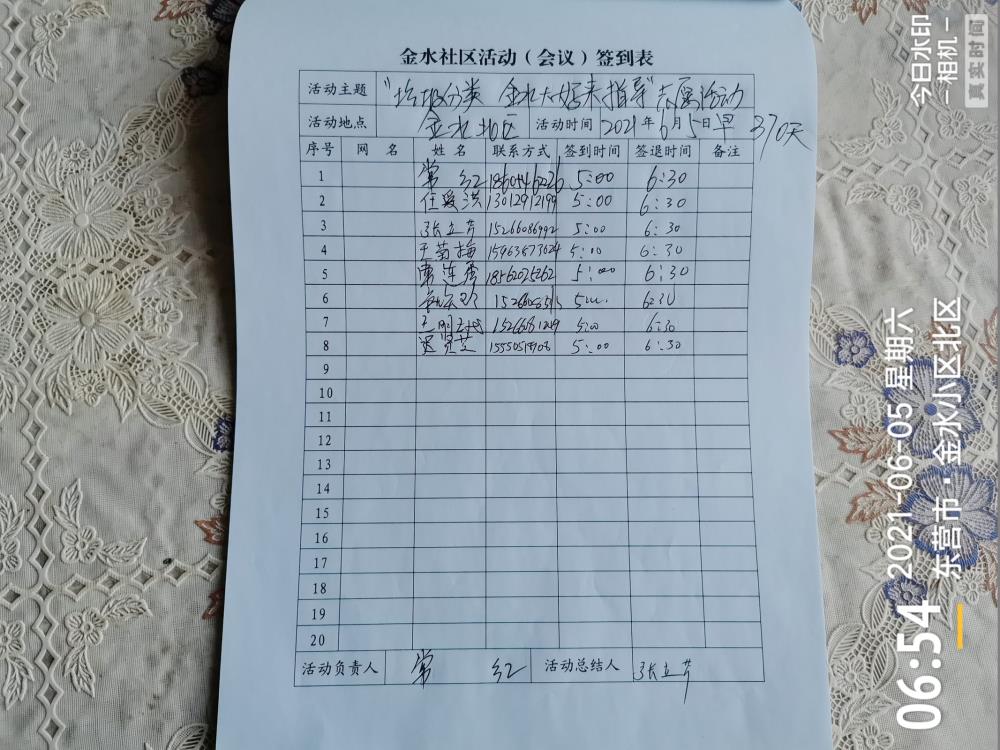 金水社区活动（会议）签到表
活动主题 "垃圾分类 金水大妈来指导"志愿活动
活动地点 金水北区 活动时间 2021年6月5日早 370天
序号 网 名 姓 名 联系方式 签到时间 签退时间 备注
1 常 红 5:00 6:30
2 任爱洪 13012912199 5:00 6:30
3 张立芹 15266086992 5:00 6:30
4 王菊梅 15963673024 5:00 6:30
5 常连秀 18562025262 5:00 6:30
6 6:30
7 5:00 6:30
8 5:00 6:30
9
10
11
12
13
14
15
16
17
18
19
20
活动负责人 常 红 活动总结人 张立芹
今日水印
相机
真实时间
06:54
2021-06-05 星期六
东营市·金水小区北区